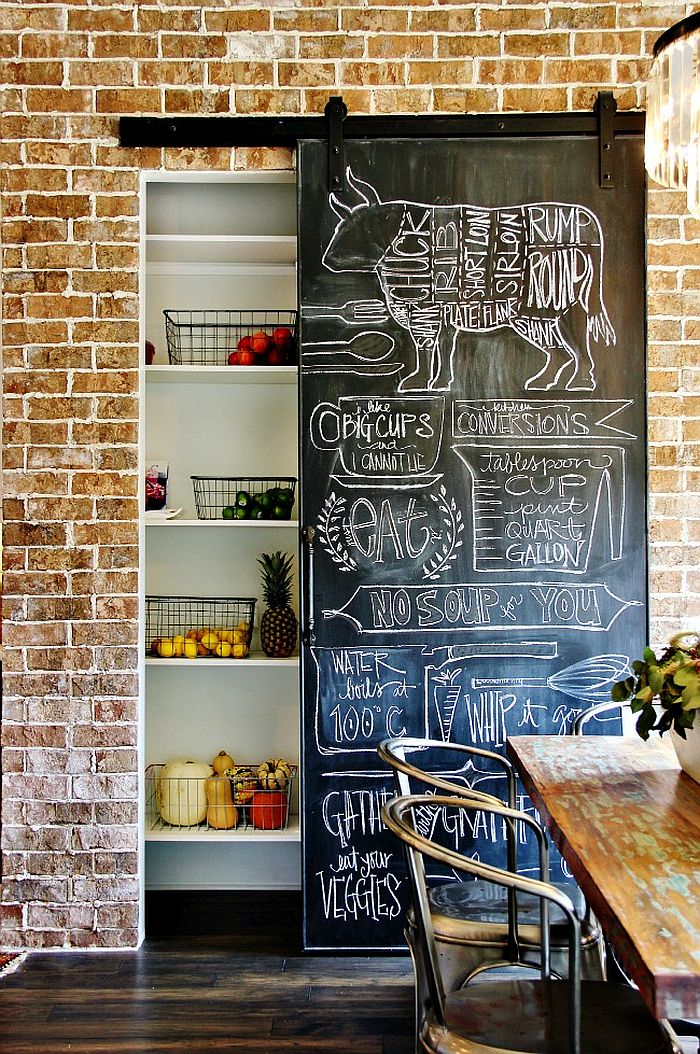 CHUCK
RIB
SHORT LOIN
SIRLOIN
RUMP
ROUND
SHANK
PLATE
FLANK
SHANK
i like
BIG CUPS
and
I CANNOT LIE
kitchen
CONVERSIONS
tablespoon
CUP
pint
QUART
GALLON
eat
NO SOUP for YOU
WATER
boils at
100°C
WHIP it
eat your
VEGGIES